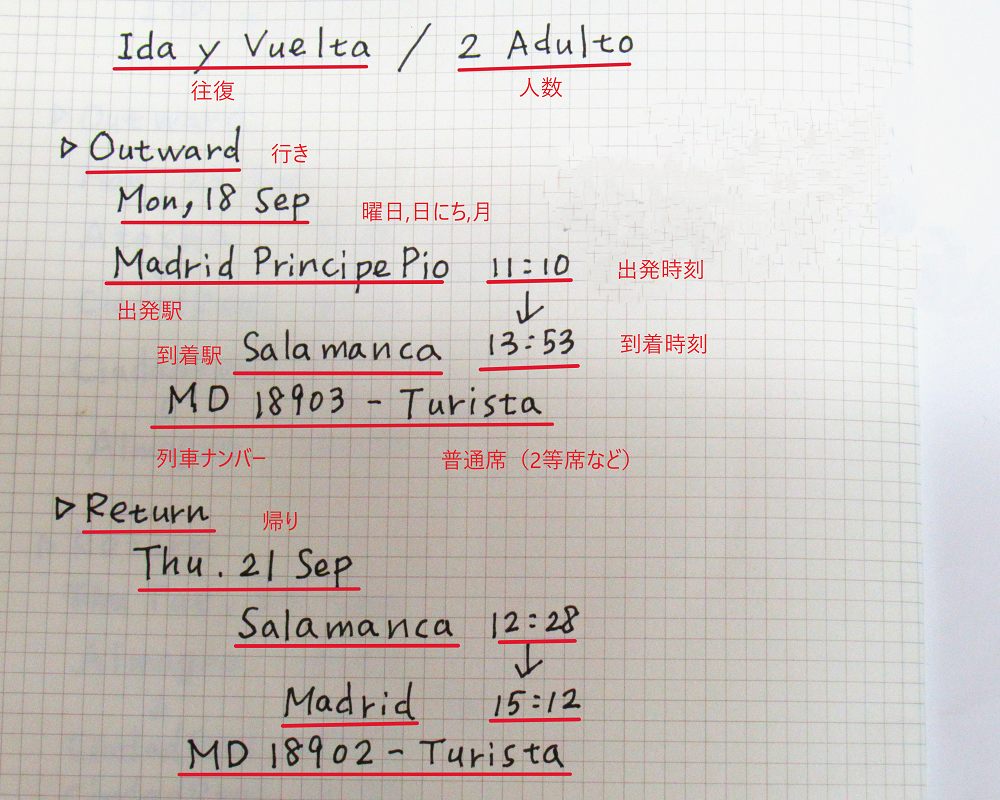 Ida y Vuelta / 2 Adulto
往復 人数
▷ Outward 行き
Mon, 18 Sep 曜日,日にち,月
Madrid Principe Pio 11:10 出発時刻
出発駅 ↓
到着駅 Salamanca 13:53 到着時刻
MD 18903 - Turista
列車ナンバー 普通席（2等席など）
▷ Return 帰り
Thu. 21 Sep
Salamanca 12:28
↓
Madrid 15:12
MD 18902 - Turista